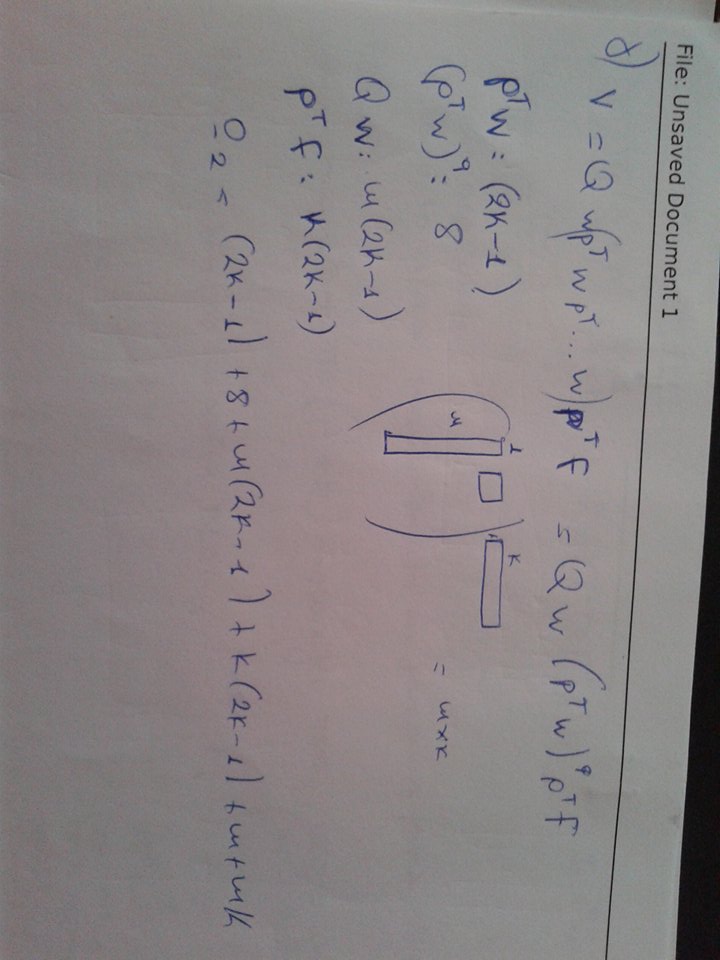 File: Unsaved Document 1
γ) V = Q w(p^T w p^T ... w)p^T F = Q w (p^T w)^9 p^T F
p^T w : (2K-1)
(p^T w)^9 : 8
Q w : m(2K-1)
p^T F : K(2K-1)
m 1 K = m×K
O_2 = (2K-1) + 8 + m(2K-1) + K(2K-1) + m + mK